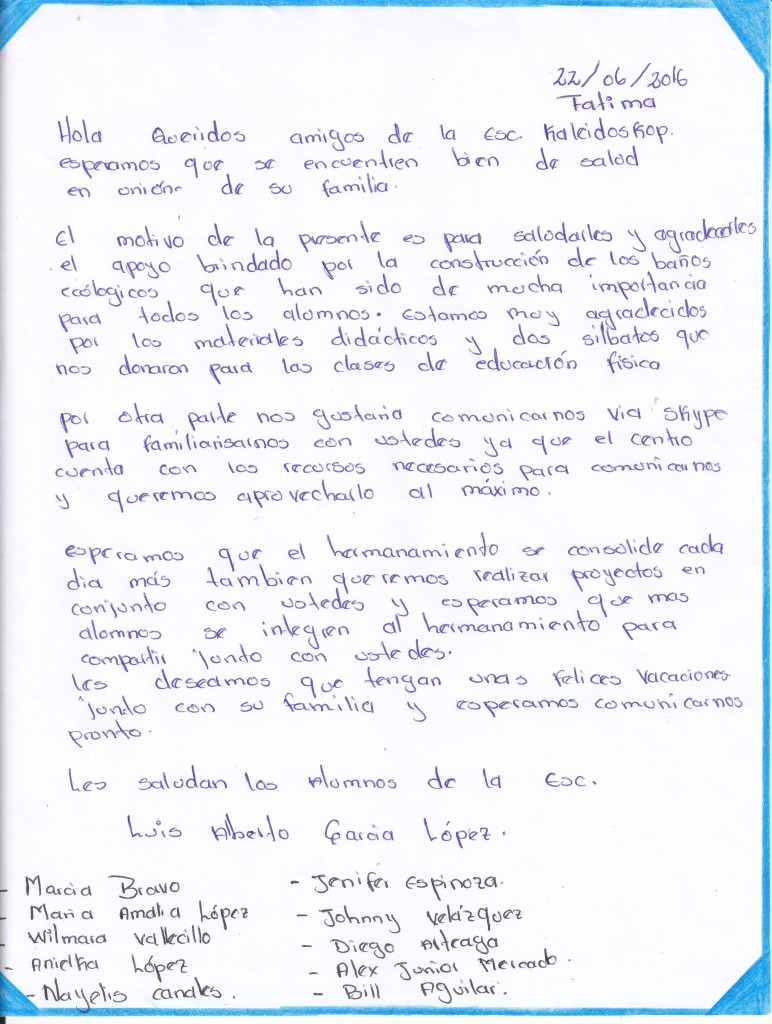 22/06/2016
Fatima
Hola Queridos amigos de la Esc. Kaleidoskop.
esperamos que se encuentren bien de salud
en unión de su familia.
El motivo de la presente es para saludarles y agradecerles
el apoyo brindado por la construcción de los baños
ecólogicos que han sido de mucha importancia
para todos los alumnos. Estamos muy agradecidos
por los materiales didácticos y dos silbatos que
nos donaron para las clases de educación física
por otra parte nos gustaría comunicarnos via Skype
para familiarisarnos con ustedes ya que el centro
cuenta con los recursos necesarios para comunicarnos
y queremos aprovecharlo al máximo.
esperamos que el hermanamiento se consolide cada
dia más tambien queremos realizar proyectos en
conjunto con ustedes y esperamos que mas
alumnos se integren al hermanamiento para
compartir junto con ustedes.
Les deseamos que tengan unas felices vacaciones
junto con su familia y esperamos comunicarnos
pronto.
Les saludan los Alumnos de la Esc.
Luis Alberto Garcia López.
- Marcia Bravo - Jenifer Espinoza.
- Maria Amalia López - Johnny Velázquez
- Wilmara Vallecillo - Diego Arteaga
- Anielka López - Alex Junior Mercado.
- Nayelis canales. - Bill Aguilar.